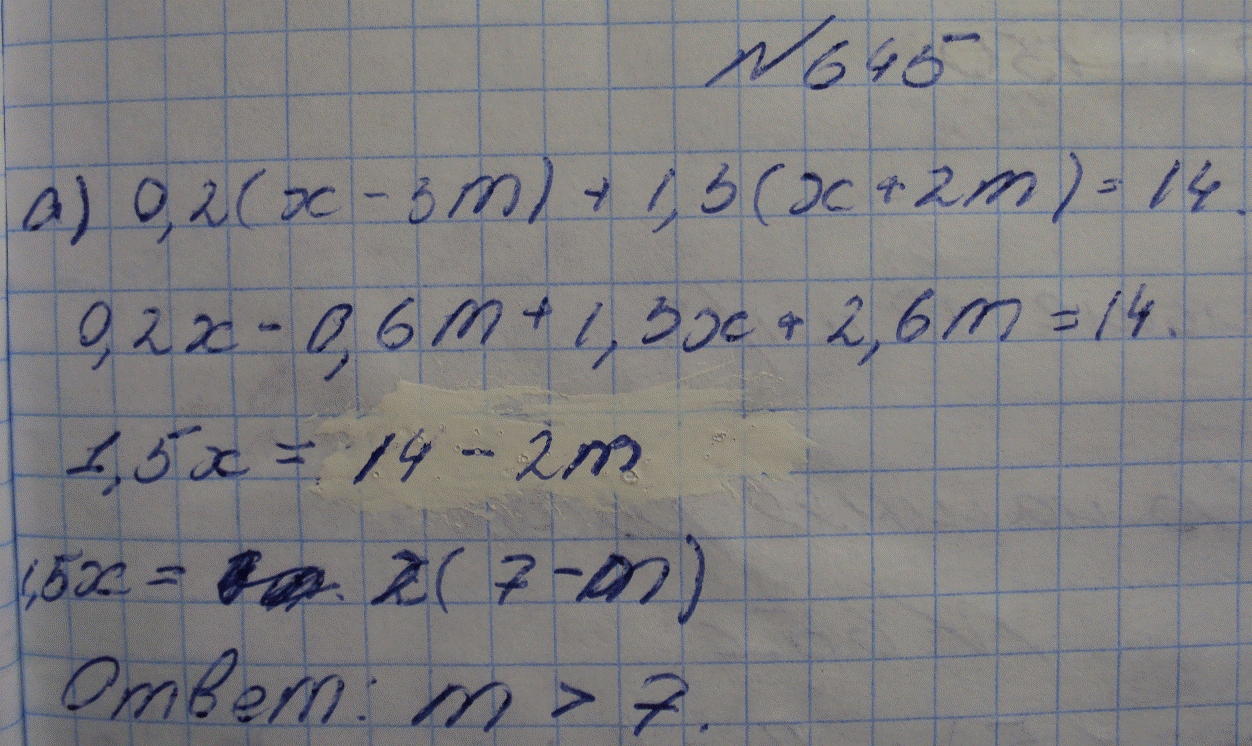 №645
а) 0,2(x - 3m) + 1,3(x + 2m) = 14.
0,2x - 0,6m + 1,3x + 2,6m = 14.
1,5x = 14 - 2m
1,5x = 2(7 - m)
Ответ: m > 7.